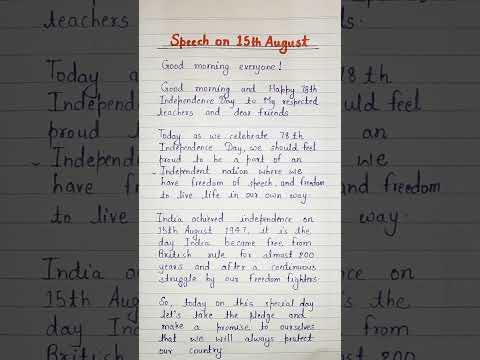 Speech on 15th August
Good morning everyone!
Good morning and Happy 78th
Independence Day to My respected
teachers and dear friends
Today as we celebrate 78th
Independence Day, we should feel
proud to be a part of an
Independent nation where we
have freedom of speech, and freedom
to live life in our own way.
India achieved independence on
15th August 1947, it is the
day India became free from
British rule for almost 200
years and after a continuous
struggle by our freedom fighters.
So, today on this special day
let's take the pledge and
make a promise to ourselves
that we will always protect
our country